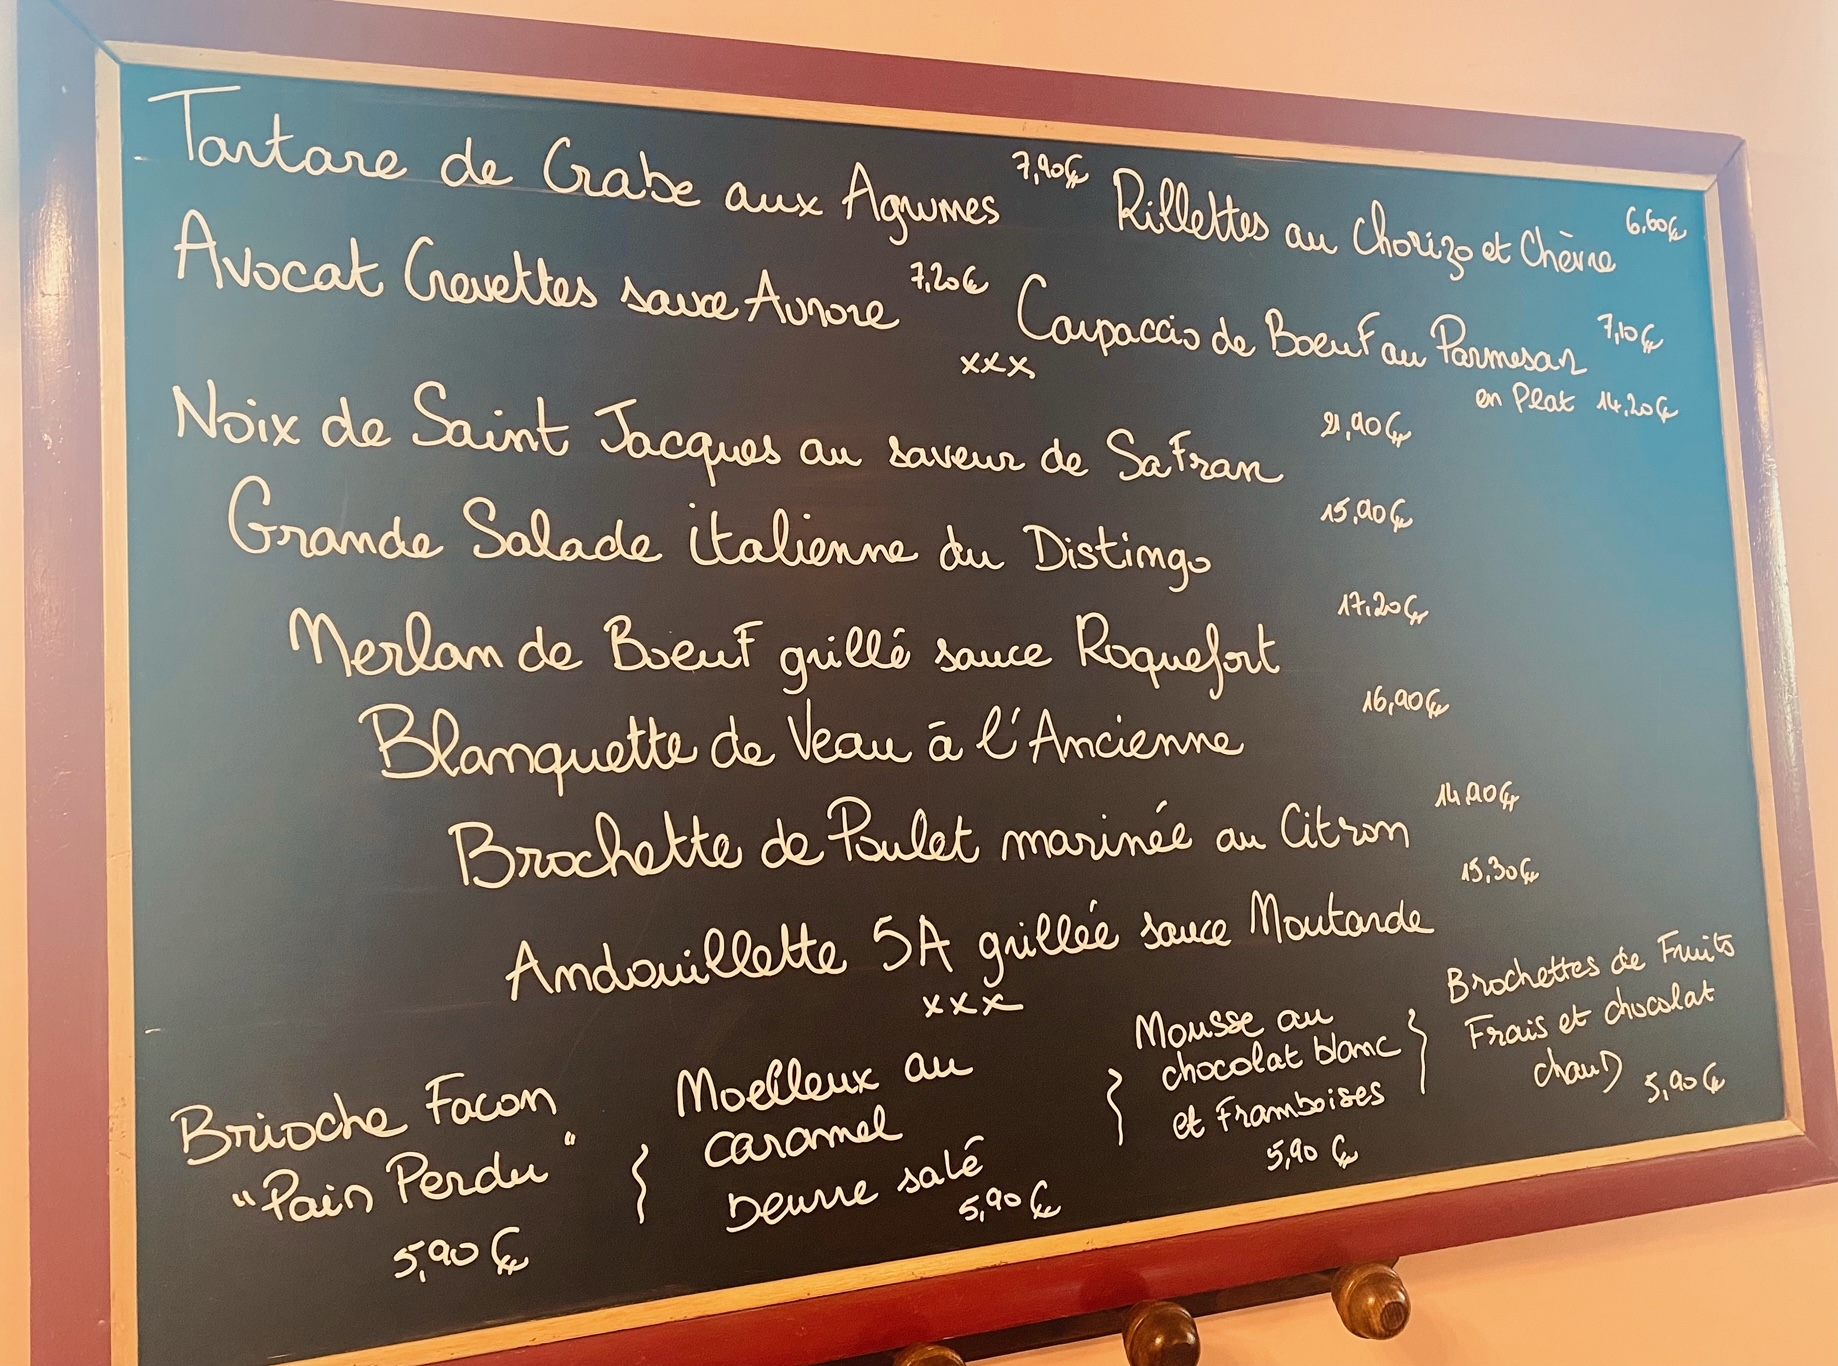 Tartare de Crabe aux Agrumes 7,90€ Rillettes au Chorizo et Chèvre 6,60€
Avocat Crevettes sauce Aurore 7,20€ Carpaccio de Boeuf au Parmesan 7,10€
xxx en Plat 14,20€
Noix de Saint Jacques au saveur de Safran 21,90€
Grande Salade italienne du Distingo 15,90€
Merlan de Boeuf grillé sauce Roquefort 17,20€
Blanquette de Veau à l'Ancienne 16,90€
Brochette de Poulet marinée au Citron 14,90€
Andouillette 5A grillée sauce Moutarde 15,30€
xxx
Brioche Facon
"Pain Perdu"
5,90€
Moelleux au
caramel
beurre salé
5,90€
Mousse au
chocolat blanc
et Framboises
5,90€
Brochettes de Fruits
Frais et chocolat
chaud 5,90€